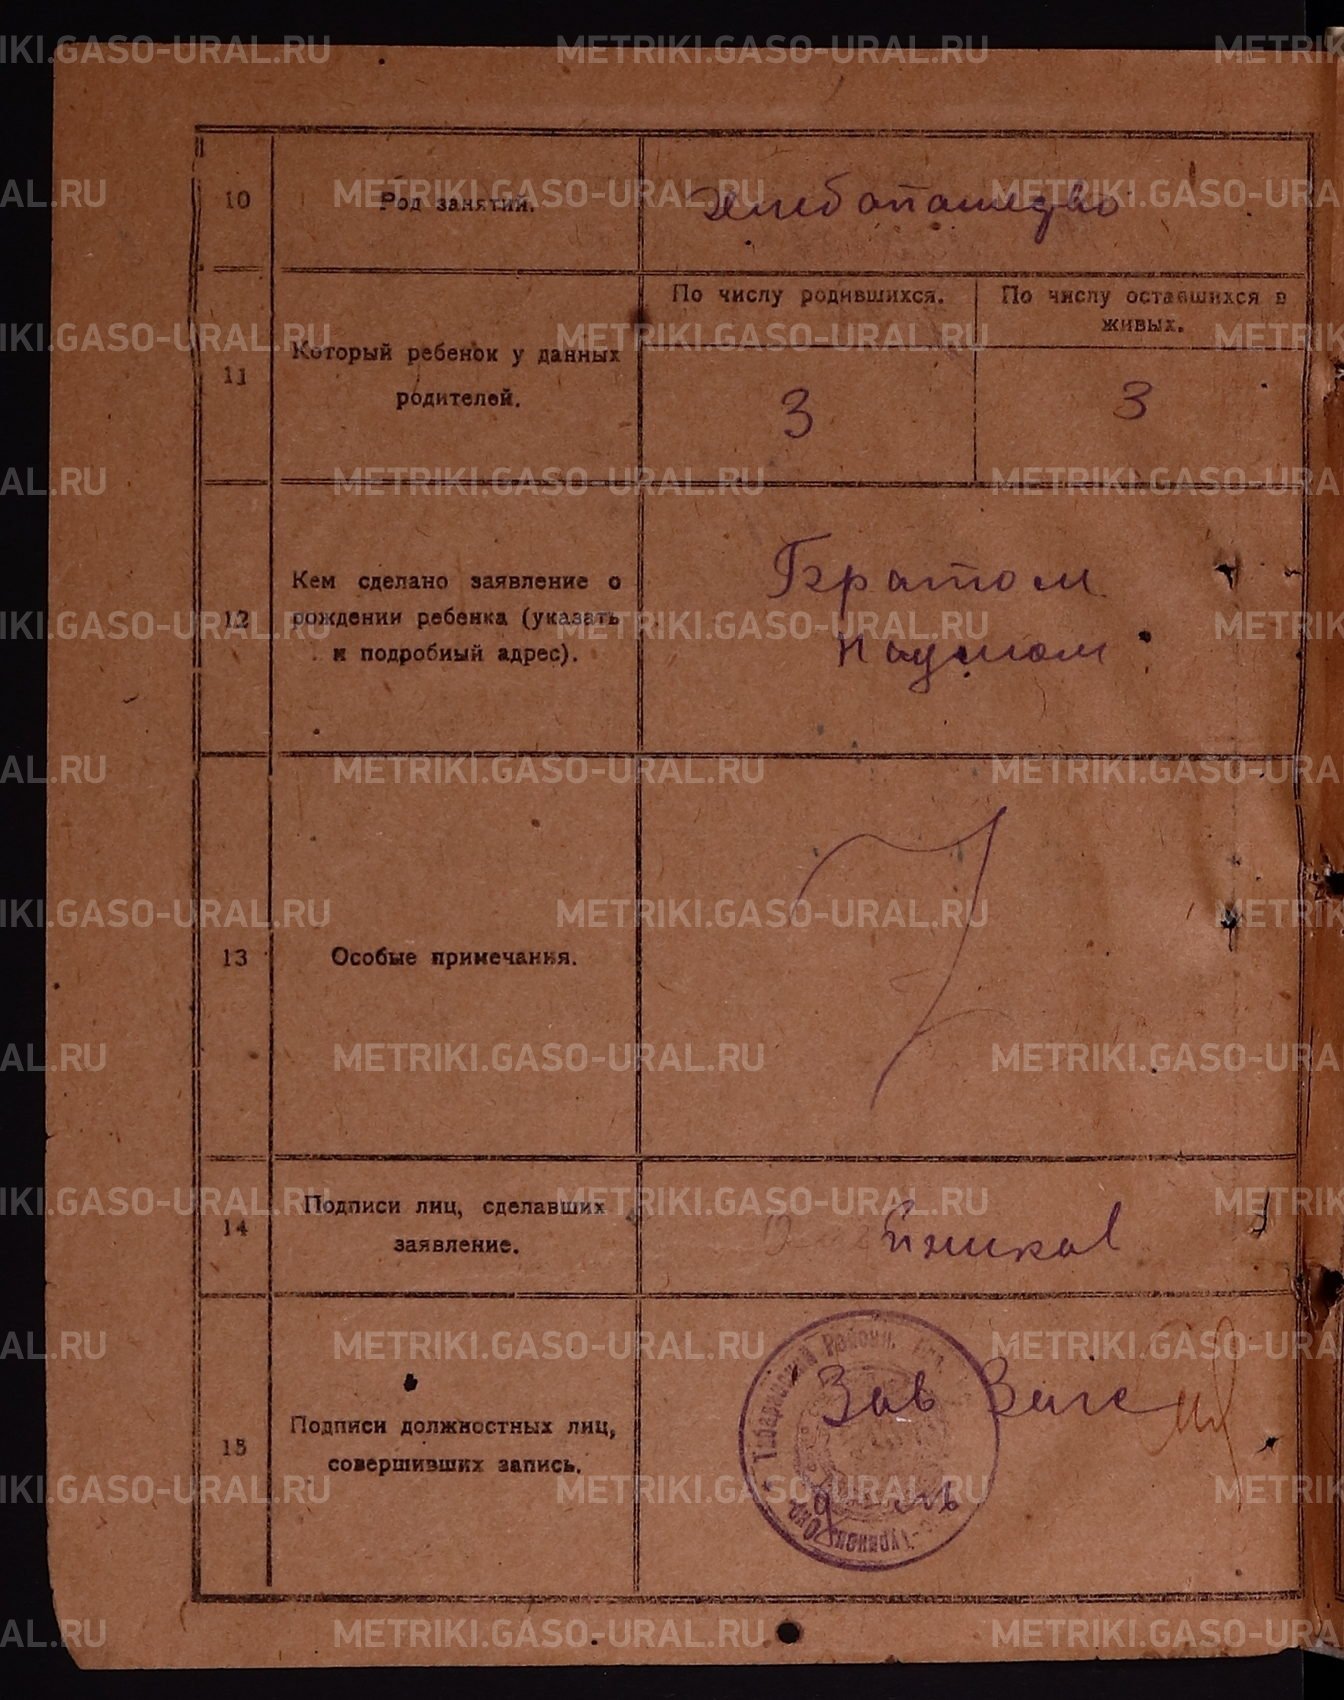 10
Род занятий.
Хлебопашедво
11
Который ребенок у данных
родителей.
По числу родившихся.
По числу оставшихся в
живых.
3
3
12
Кем сделано заявление о
рождении ребенка (указать
и подробный адрес).
Братом
Наумом
13
Особые примечания.
14
Подписи лиц, сделавших
заявление.
15
Подписи должностных лиц,
совершивших запись.
Зав Загс
Районн.
METRIKI.GASO-URAL.RU